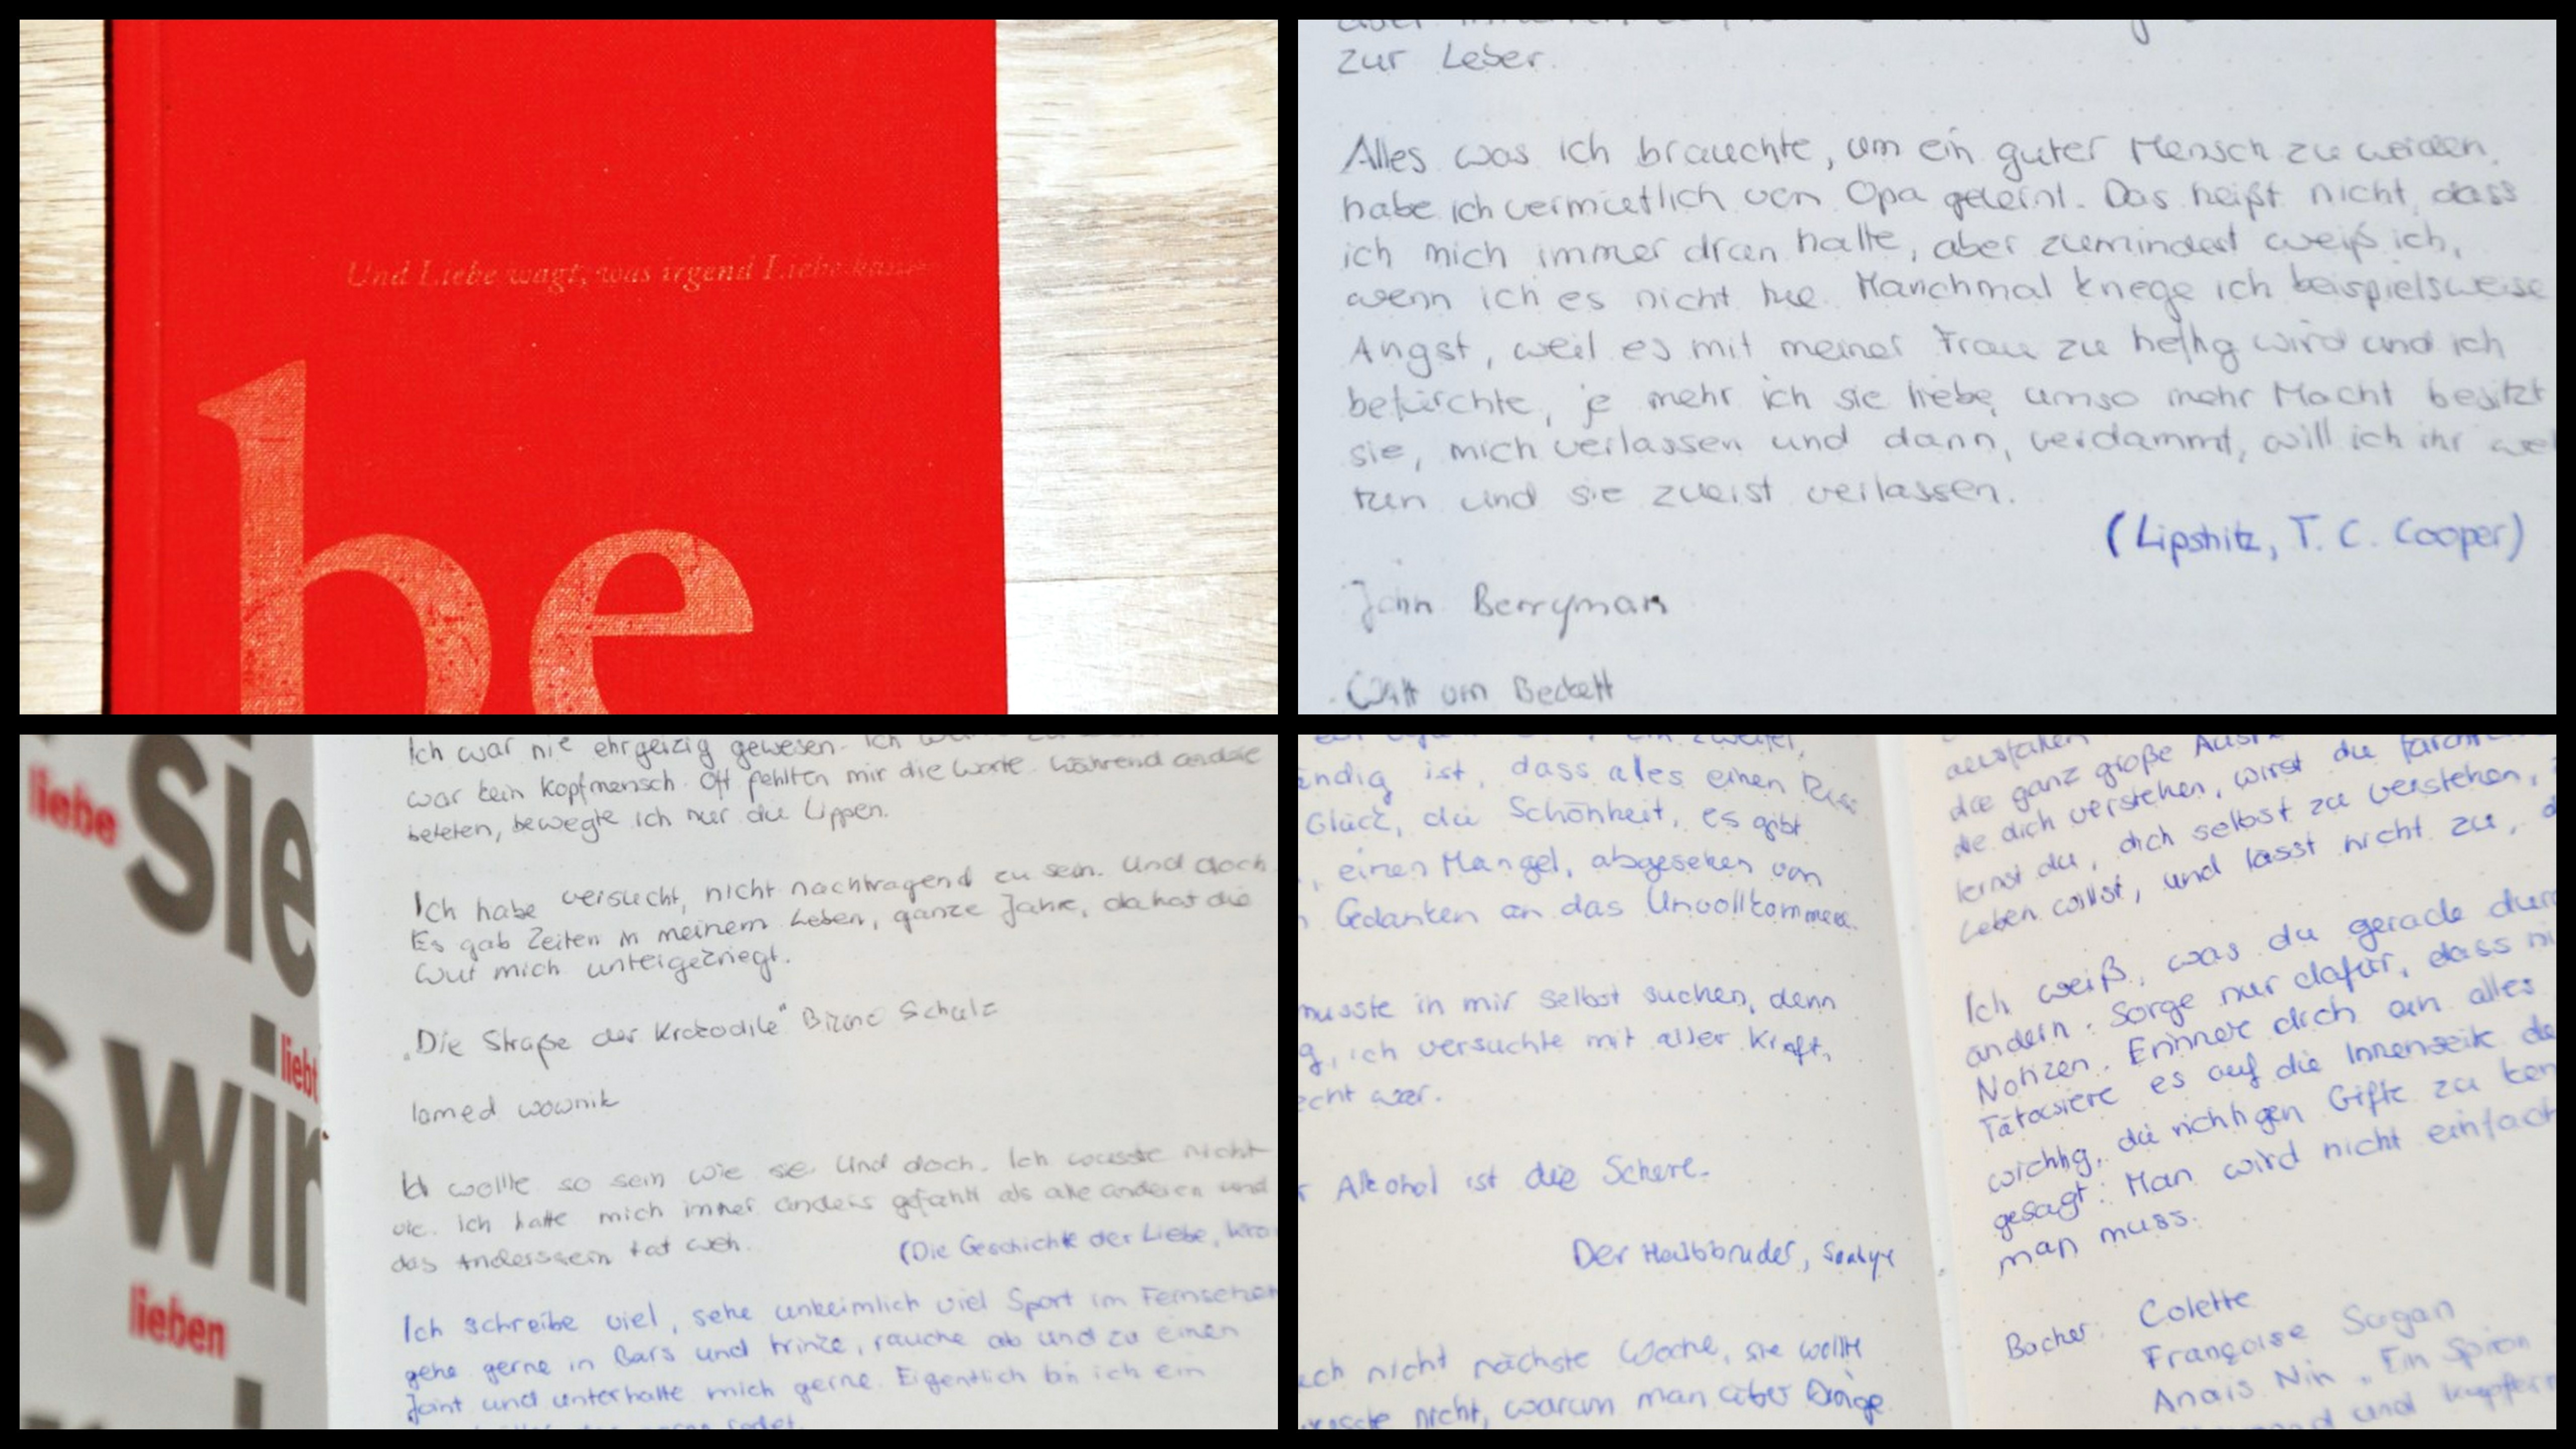 Und Liebe wagt, was irgend Liebe kann
be
zur Leber.
Alles was ich brauchte, um ein guter Mensch zu werden,
habe ich vermutlich von Opa gelernt. Das heißt nicht, dass
ich mich immer dran halte, aber zumindest weiß ich,
wenn ich es nicht tue. Manchmal kriege ich beispielsweise
Angst, weil es mit meiner Frau zu heftig wird und ich
befürchte, je mehr ich sie liebe, umso mehr Macht besitzt
sie, mich verlassen und dann, verdammt, will ich ihr
tun und sie zuerst verlassen.
(Lipshitz, T. C. Cooper)
John Berryman
Watt von Beckett
sie
liebe
s wir
liebt
lieben
Ich war nie ehrgeizig gewesen. Ich
war kein Kopfmensch. Oft fehlten mir die Worte. Während andere
beteten, bewegte ich nur die Lippen.
Ich habe versucht, nicht nachtragend zu sein. Und doch
Es gab Zeiten in meinem Leben, ganze Jahre, da hat die
Wut mich untergekriegt.
„Die Straße der Krokodile" Bruno Schulz
lamed wownik
Ich wollte so sein wie sie. Und doch. Ich wusste nicht
wie. Ich hatte mich immer anders gefühlt als alle anderen und
das Anderssein tat weh.
(Die Geschichte der Liebe,
Ich schreibe viel, sehe unheimlich viel Sport im Fernsehen
gehe gerne in Bars und trinke, rauche ab und zu einen
Joint und unterhalte mich gerne. Eigentlich bin ich ein
ändig ist, dass alles einen Riss
Glück, die Schönheit, es gibt
, einen Mangel, abgesehen vom
Gedanken an das Unvollkommene.
musste in mir selbst suchen, denn
g, ich versuchte mit aller Kraft,
echt war.
r Alkohol ist die Schere.
Der Halbbruder,
ch nicht nächste Woche, sie wollte
nicht, warum man über Dinge
die ganz große
die dich verstehen, wirst du
lernst du, dich selbst zu verstehen,
Leben willst, und lässt nicht zu, d
Ich weiß, was du gerade dur
ändern. Sorge nur dafür, dass
Notizen. Erinnere dich an alles
Tätowiere es auf die Innenseite de
wichtig, die richtigen Gifte zu ken
gesagt: Man wird nicht einfach
man muss.
Bücher: Colette
Françoise Sagan
Anais Nin „Ein Spion
und